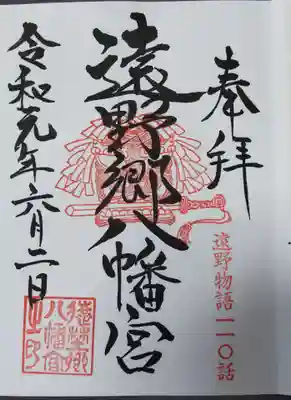 奉拝
遠野物語一一〇話
遠野郷八幡宮
令和元年六月二日
遠野郷
八幡宮
之印